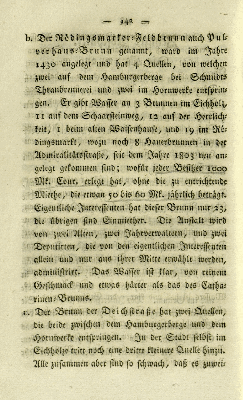 — 142 —
b. Der Rödingsmarker-Feldbrunn auch Pul-
verhaus-Brunn genannt, ward im Jahre
1430 angelegt und hat 4 Quellen, von welchen
zwei auf dem Hamburgerberge bei Schmidts
Thranbrennerei und zwei im Hornwerke entsprin-
gen. Er gibt Wasser an 3 Brunnen im Eichholz,
11 auf dem Schaarsteinweg, 12 auf der Herrlich-
keit, 1 beim alten Waisenhause, und 19 im Rö-
dingsmarkt, wozu noch 8 Hauerbrunnen in der
Admiralitätsstraße, seit dem Jahre 1803 neu an-
gelegt gekommen sind; wofür jeder Besitzer 1000
Mk. Cour. erlegt hat, ohne die zu entrichtende
Miethe, die etwan 50 bis 60 Mk. jährlich beträgt.
Eigentliche Interessenten hat dieser Brunn nur 23,
die übrigen sind Einmiether. Die Anstalt wird
von zwei Alten, zwei Jahrverwaltern, und zwei
Deputirten, die von den eigentlichen Interessenten
allein und nur aus ihrer Mitte erwählt werden,
administrirt. Das Wasser ist klar, von reinem
Geschmack und etwas härter als das des Catha-
rinen-Brunns.
c. Der Brunn der Deichstraße hat zwei Quellen,
die beide zwischen dem Hamburgerberge und dem
Hornwerke entspringen. In der Stadt selbst im
Eichholze tritt noch eine dritte kleinere Quelle hinzu.
Alle zusammen aber sind so schwach, daß es zuwei-